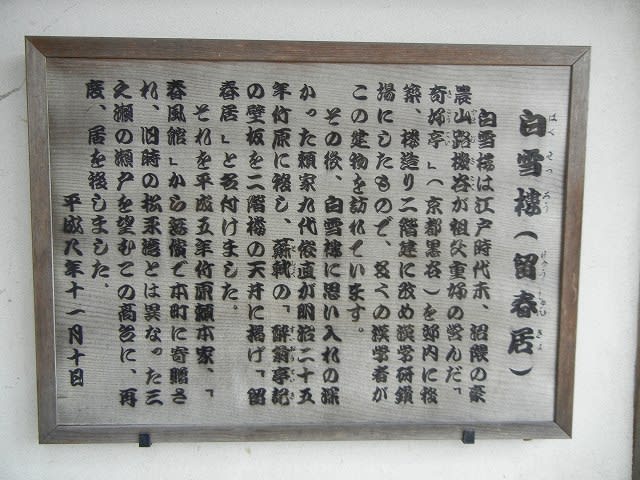 白雪樓（留春居）
白雪樓は江戸時代末、沼隈の豪
農山路機谷が祖父重好の営んだ「
奇好亭」（京都黒谷）を邸内に移
築、楼造り二階建に改め漢学研鑽
場にしたもので、多くの漢学者が
この建物を訪れています。
その後、白雪樓に思い入れの深
かった頼家九代俊直が明治二十五
年竹原に移し、蘇軾の「酔翁亭記
の壁板を二階楼の天井に掲げ「留
春居」と名付けました。
それを平成五年竹原頼本家、「
春風館」から無償で本町に寄贈さ
れ、旧時の松永湾とは異なった三
之瀬の瀬戸を望むこの高台に、再
度、居を移しました。
平成八年十一月十日